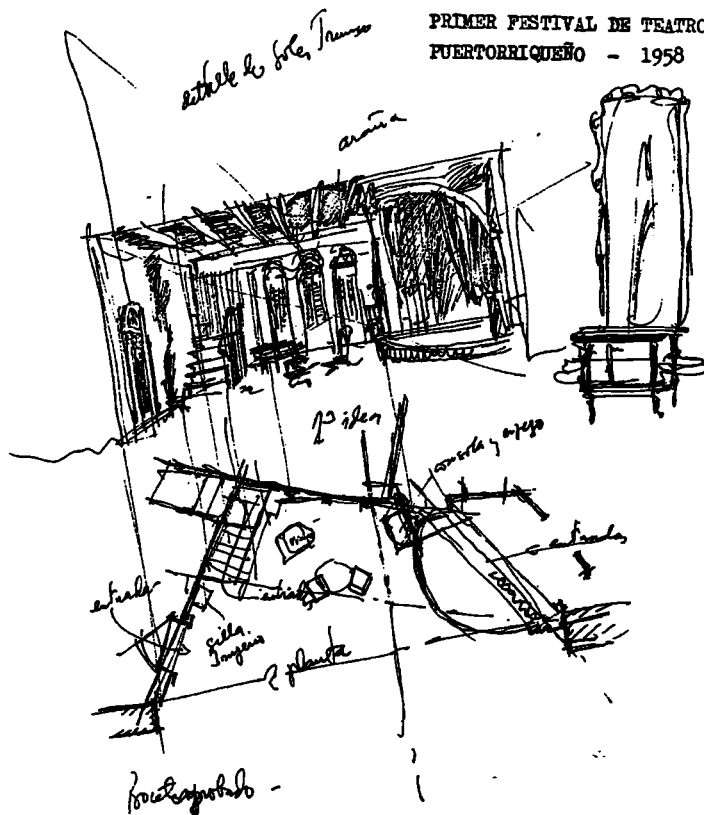 PRIMER FESTIVAL DE TEATRO
PUERTORRIQUEÑO - 1958
detalle de
araña
1ª idea
consola y espejo
entrada
entrada
entrada
silla
planta
Boceto aprobado -